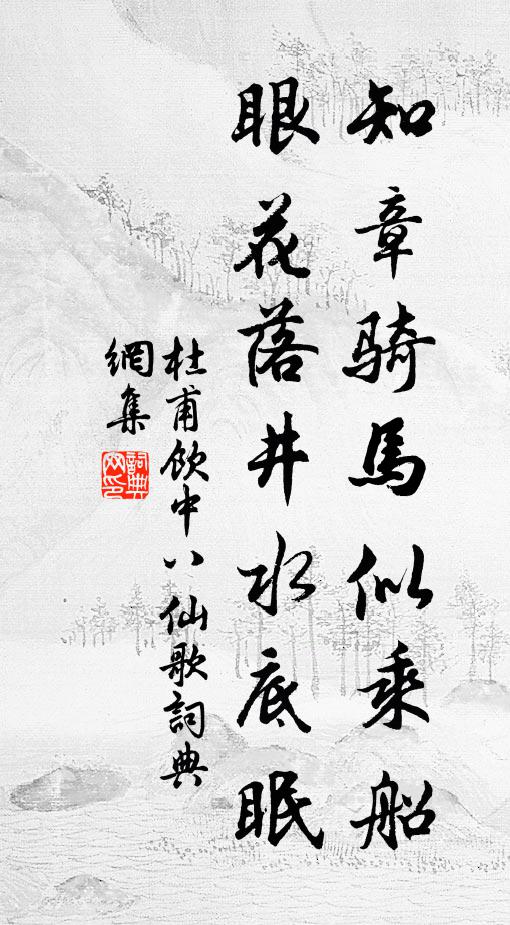 知章騎馬似乘船
眼花落井水底眠
杜甫飲中八仙歌詞典
網集
詞典
网印